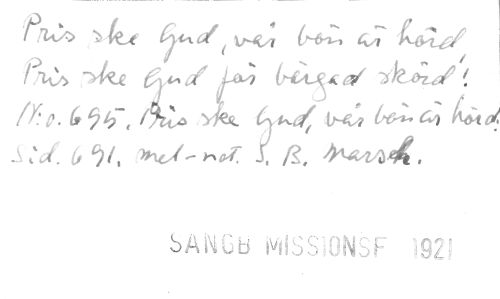 Pris ske Gud, vår bön är hörd,
Pris ske Gud för bärgad skörd!
N:o. 695. Pris ske Gud, vår bön är hörd.
Sid. 691. mel-not. S. B. Marsch.
SANGB MISSIONSF 1921